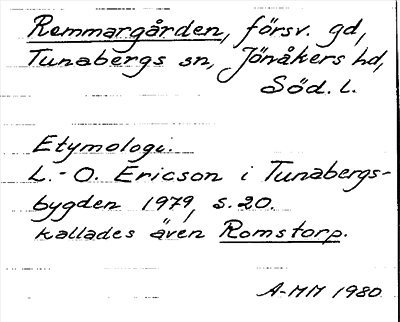 Remmargården, försv. gd,
Tunabergs sn, Jönåkers hd,
Söd. l.
Etymologi.
L.-O. Ericson i Tunabergs-
bygden 1979, s. 20.
kallades även Romstorp.
A-MM 1980